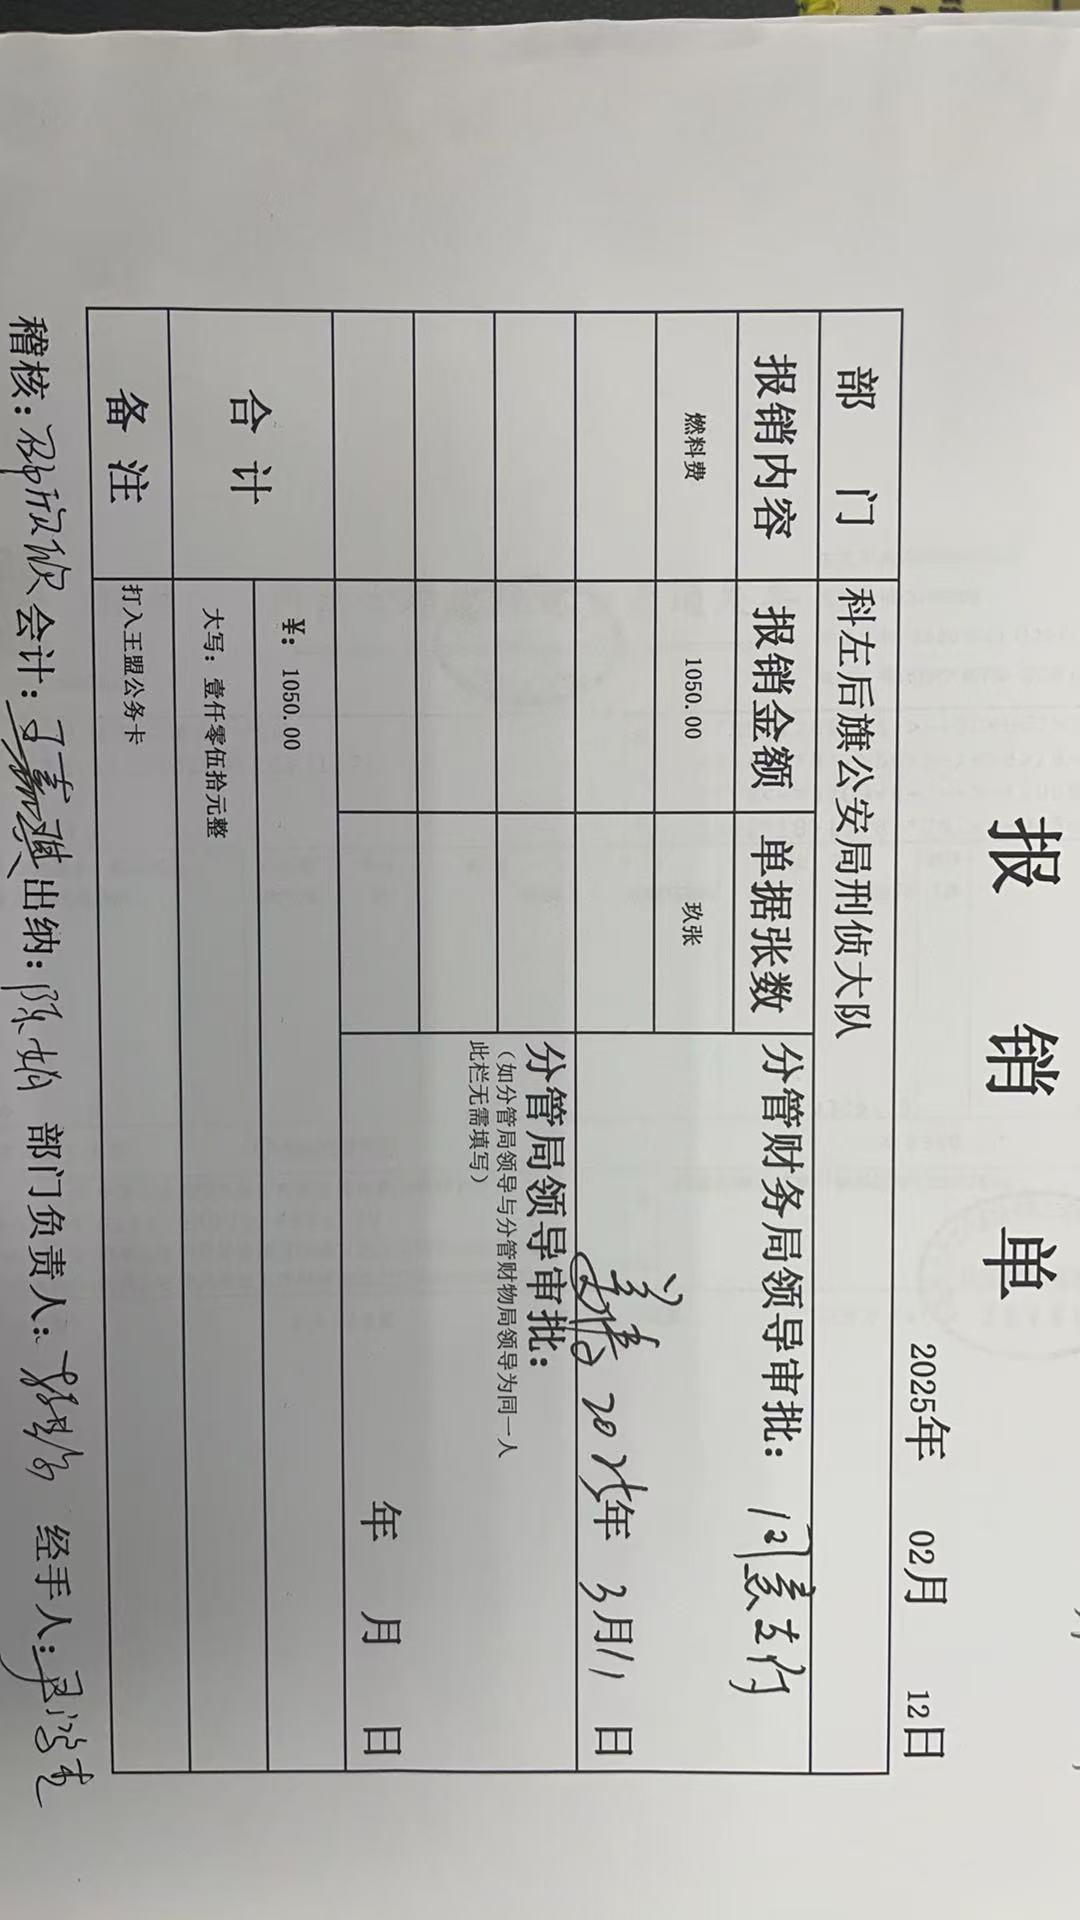 报 销 单
2025年 02月 12日
部 门 科左后旗公安局刑侦大队
报销内容 报销金额 单据张数 分管财务局领导审批： 同意支付
燃料费 1050.00 玖张
2025年 3月11日
分管局领导审批：
（如分管局领导与分管财物局领导为同一人
此栏无需填写）
年 月 日
合 计 ¥：1050.00
大写：壹仟零伍拾元整
备 注 打入王盟公务卡
稽核： 会计： 出纳：陈娟 部门负责人： 经手人：